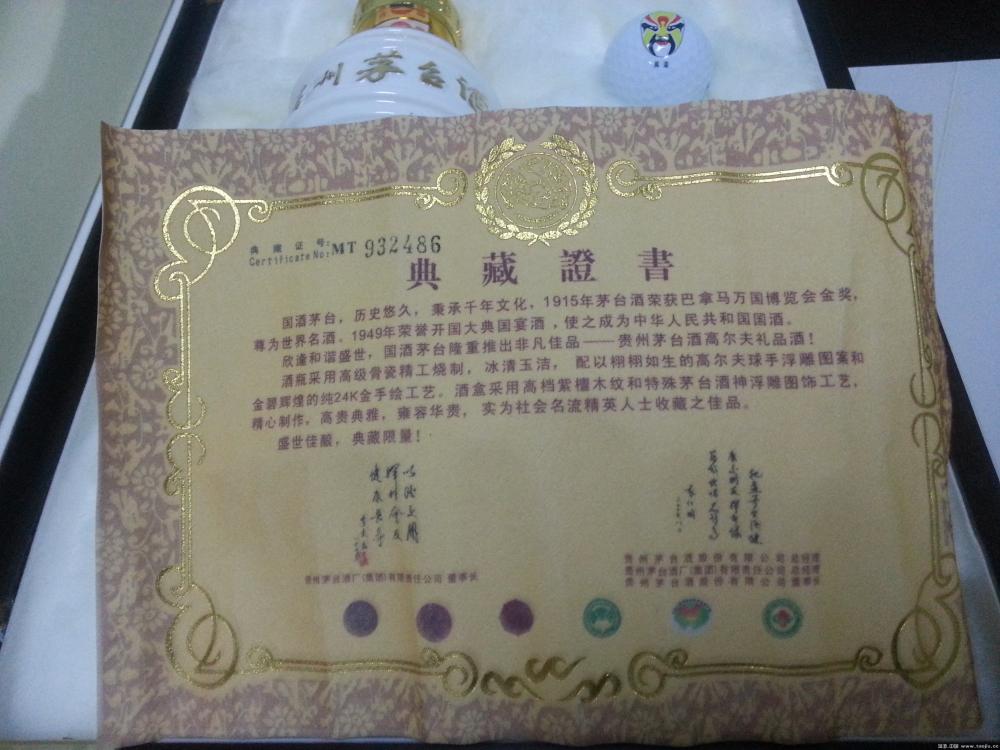 州茅台酒
典藏证号:
Certificate No:MT 932486
典藏證書
国酒茅台，历史悠久，秉承千年文化，1915年茅台酒荣获巴拿马万国博览会金奖，
尊为世界名酒。1949年荣誉开国大典国宴酒，使之成为中华人民共和国国酒。
欣逢和谐盛世，国酒茅台隆重推出非凡佳品——贵州茅台酒高尔夫礼品酒！
酒瓶采用高级骨瓷精工烧制，冰清玉洁，配以栩栩如生的高尔夫球手浮雕图案和
金碧辉煌的纯24K金手绘工艺。酒盒采用高档紫檀木纹和特殊茅台酒神浮雕图饰工艺，
精心制作，高贵典雅，雍容华贵，实为社会名流精英人士收藏之佳品。
盛世佳酿，典藏限量！
贵州茅台酒厂(集团)有限责任公司 董事长
贵州茅台酒股份有限公司 总经理
贵州茅台酒厂(集团)有限责任公司 总经理
贵州茅台酒股份有限公司 董事长